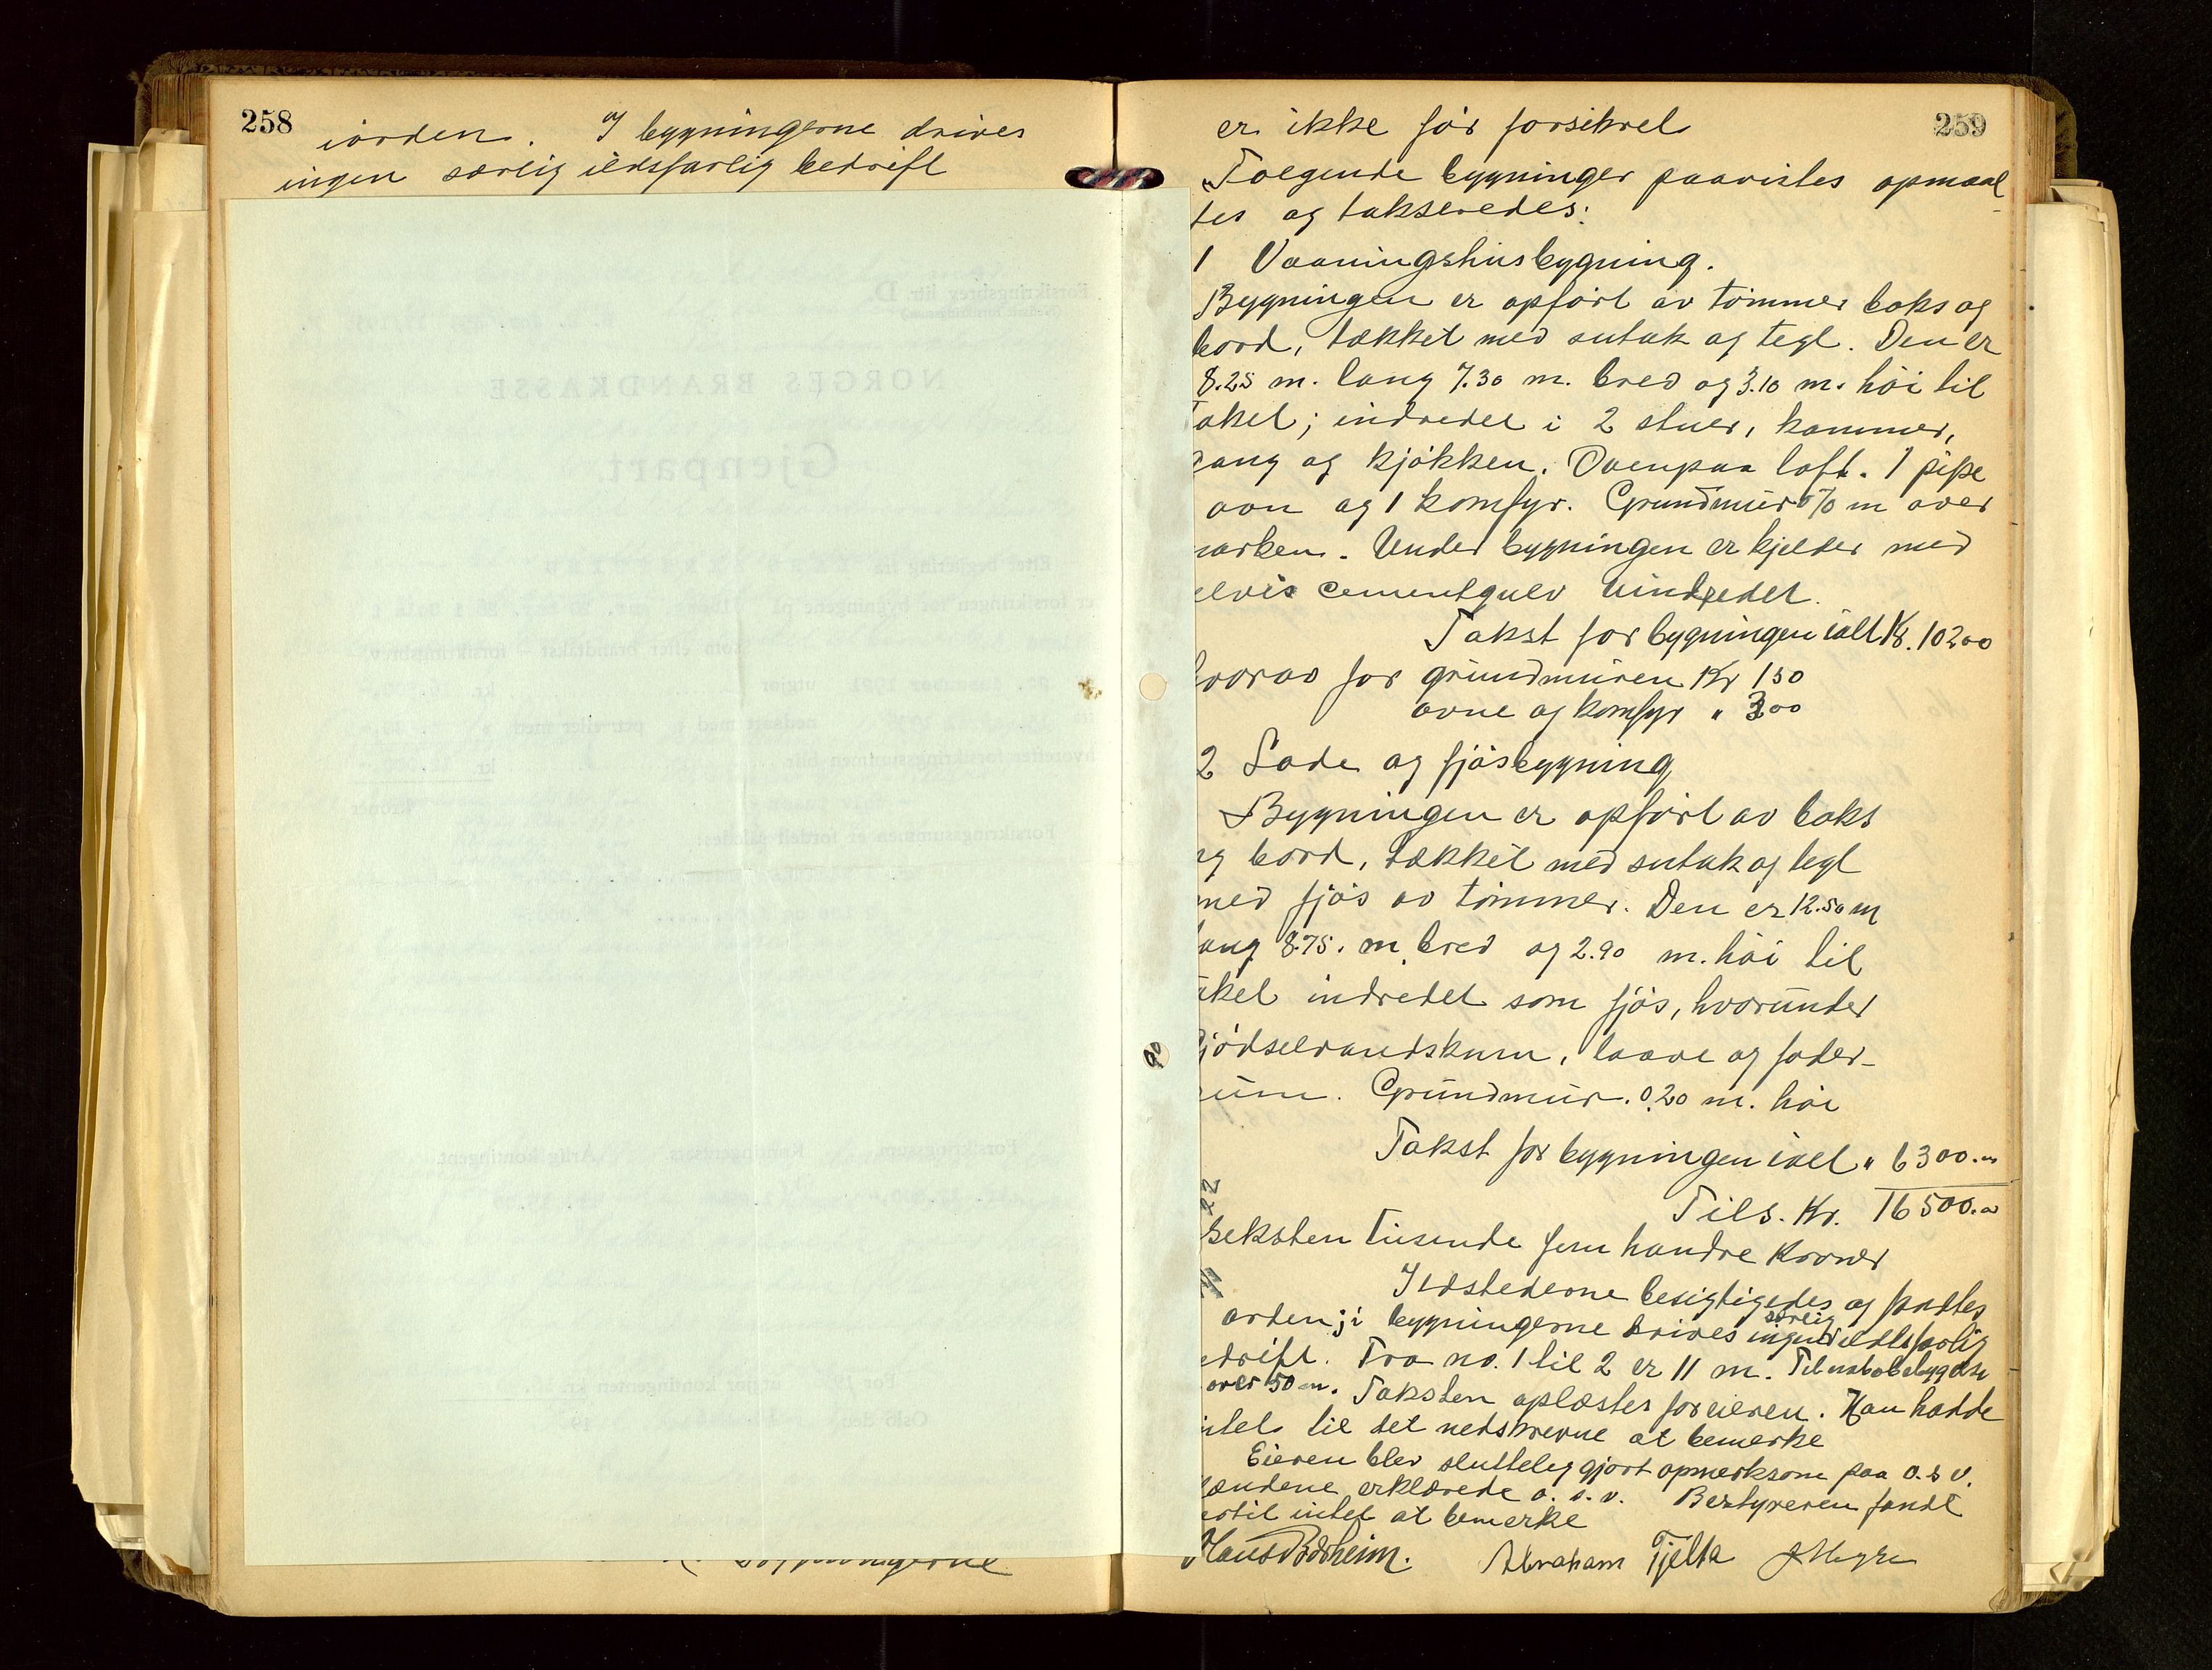 258
iorden. I bygningerne drives
ingen særlig ildsfarlig bedrift
bygningerne
259
er ikke før forsikret
Følgende bygninger paavistes opmaal
tes og takseredes:
1 Vaaningshusbygning.
Bygningen er opført av tømmer boks og
bord, tækket med sutak og tegl. Den er
8.25 m. lang 7.30 m. bred og 3.10 m. høi til
taket; indredet i 2 stuer, kammer,
gang og kjøkken. Ovenpaa loft. 1 pipe
ovn og 1 komfyr. Grundmur m over
marken. Under bygningen er kjelder med
elvis cementgulv uindredet.
Takst for bygningen ialt Kr. 10200
hvorav for grundmuren Kr 150
ovne og komfyr " 300
2 Lade og fjøsbygning
Bygningen er opført av boks
og bord, tækket med sutak og tegl
med fjøs av tømmer. Den er 12.50 m
lang 8.75. m bred og 2.90 m. høi til
taket indredet som fjøs, hvorunder
gjødselvandskum, laave og foder-
rum. Grundmur. 0.20 m. høi
Takst for bygningen ialt " 6300.00
Tils. Kr. 16500.00
seksten tusende fem hundre Kroner
Ildstederne besigtigedes og fandtes
orden; i bygningerne drives ingen særlig ildsfarlig
edrift. Fra no. 1 til 2 er 11 m. Til nabobebyggelse
over 50 m. Taksten oplæstes for eieren. Han hadde
intet til det nedskrevne at bemerke
Eieren blev slutteleg gjort opmerksom paa o.s.v.
ændene erklærede o.s.v. Bestyreren fandt
ertil intet at bemerke
Hans Bðsheim. Abraham Tjelta
NORGES BRANDKASSE
Gjenpart